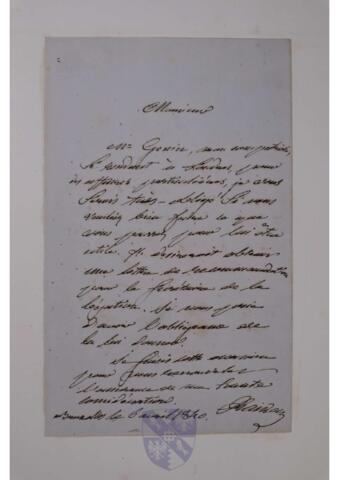 Monsieur
Mr Genin, mon compatriote,
se rendant à Londres, pour
ses affaires particulières, je vous
serais très-obligé si vous
vouliez bien faire ce que
vous pourrez pour lui être
utile. Il désirerait obtenir
une lettre de recommandation
pour le secrétaire de la
légation. Je vous prie
d'avoir l'obligeance de
la lui donner.
Je saisis cette occasion
pour vous renouveler
l'assurance de ma haute
considération.
le 6 avril 1840.